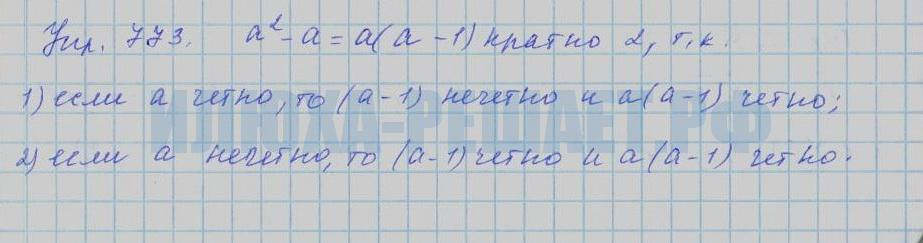 Упр. 773. a² - a = a(a - 1) кратно 2, т.к.
1) если a четно, то (a - 1) нечетно и a(a - 1) четно;
ИЛЮХА-РЕШАЕТ.РФ
2) если a нечетно, то (a - 1) четно и a(a - 1) четно.